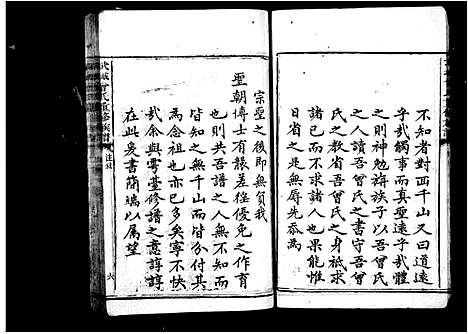 不知者對面千山又曰道遠
乎哉觸事而真聖遠乎哉體
之則神勉旃族子以吾曾氏
之人讀吾曾氏之書守吾曾
氏之教省吾曾氏之身祇求
諸己而不求諸人也果能惟
日省之是無辱先忝為
宗聖之後即無負我
聖朝博士有祿差徭優免之作育
則也共吾譜之人皆分付其
皆知之無千山而
為念祖也亦已多矣寧不快
哉余與雩臺修譜之意諄諄
在此爰書簡端以屬望
武城曾氏重修族譜
六